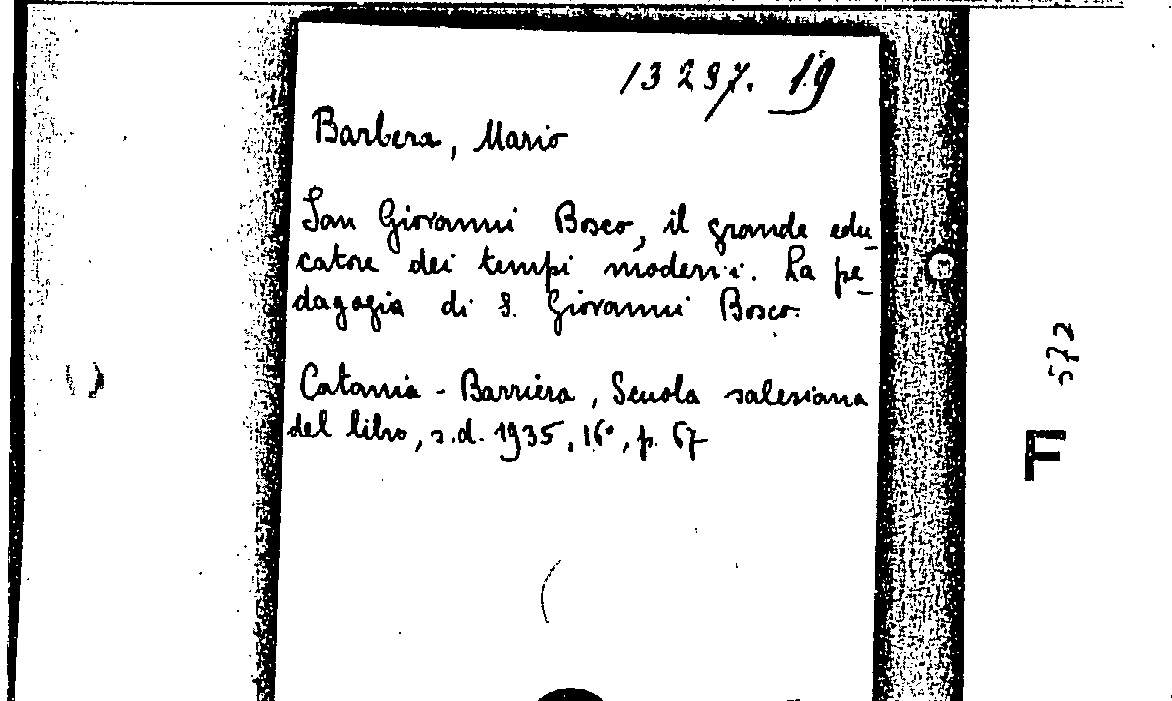 13297. 19
Barbera, Mario
San Giovanni Bosco, il grande edu-
catore dei tempi moderni. La pe-
dagogia di S. Giovanni Bosco.
Catania - Barriera, Scuola salesiana
del libro, s.d. 1935, 16°, p. 67
572